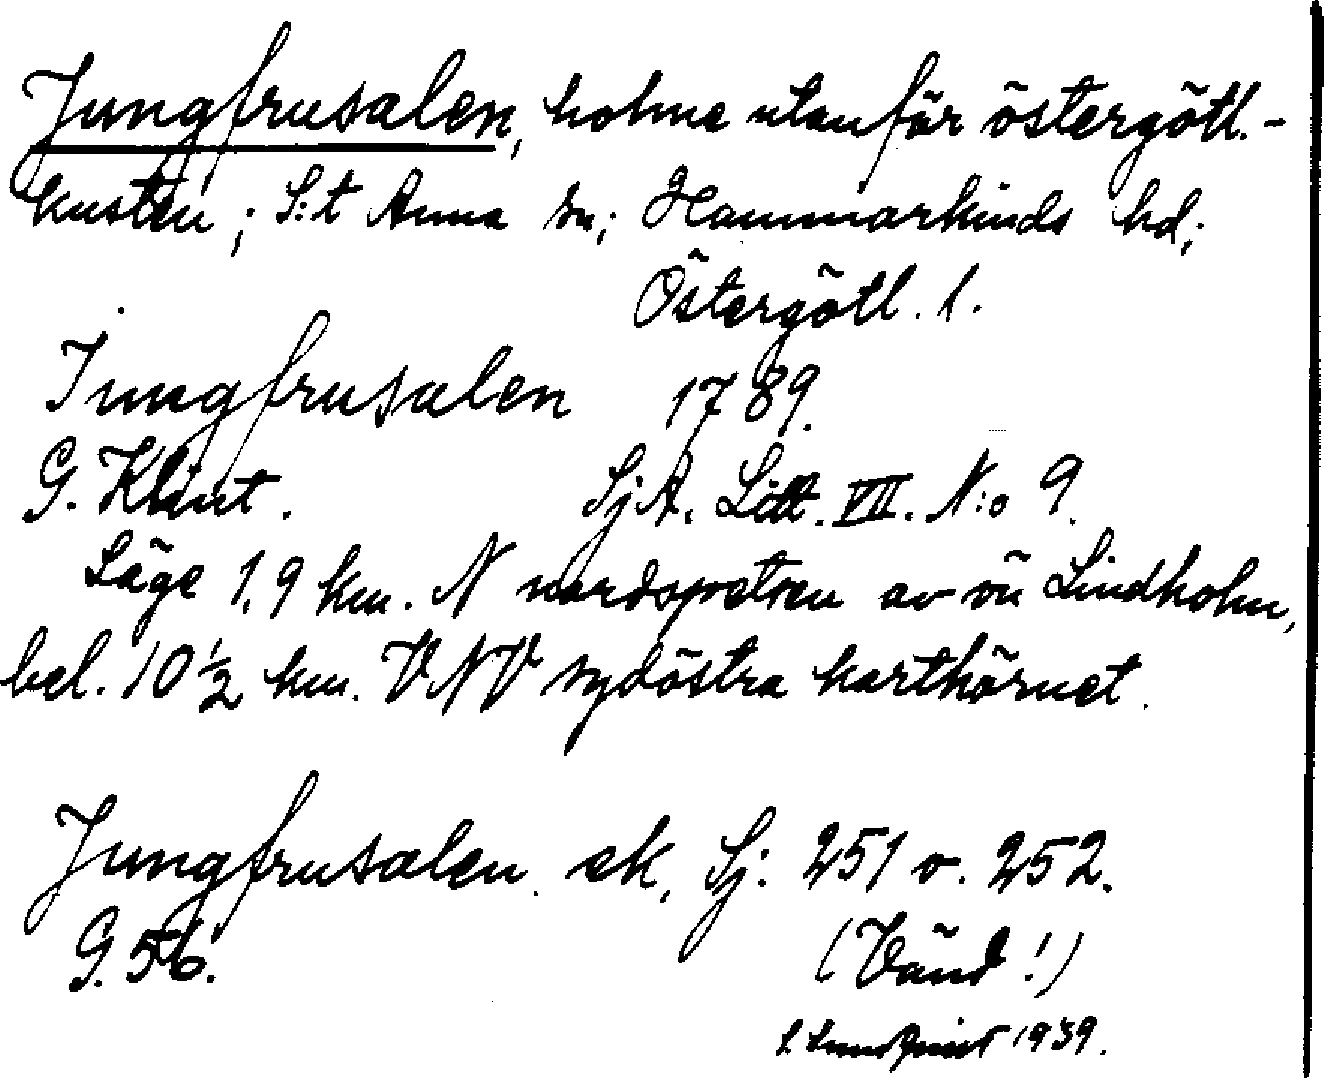 Jungfrusalen, holme utanför östergötl.-
kusten; S:t Anna sn; Hammarkinds hd;
Östergötl. l.
Jungfrusalen 1789.
G. Klint. SjA. Litt. VII. N:o 9.
Läge 1,9 km. N nordspetsen av ön Lindholm,
bel. 10½ km. VNV sydöstra karthörnet.
Jungfrusalen. ek. Sj: 251 o. 252.
G. 56. (Vänd!)
Lundquist 1939.